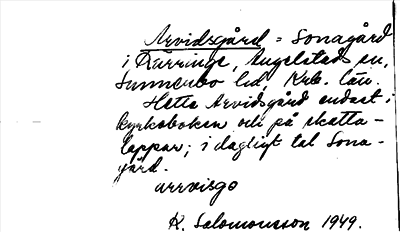 Arvidsgård = Sonagård
i Rärringe, Angelstads sn,
Sunnerbo hd, Krb. län.
Hette Arvidsgård endast i
kyrkoboken och på skatte-
lappar; i dagligt tal Sona-
gård.
arrvisgo
K. Salomonsson 1949.